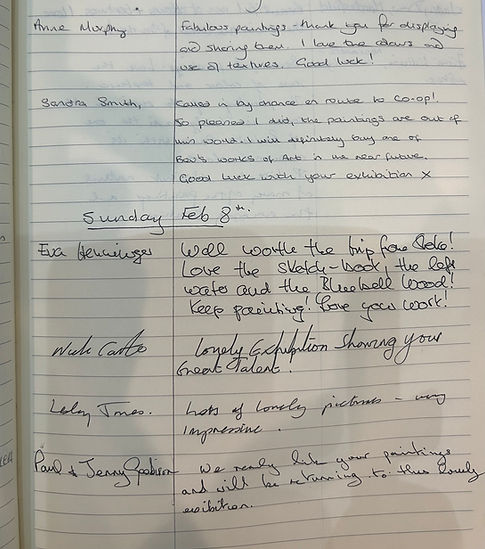 Anne Murphy Fabulous paintings - thank you for displaying
and sharing them. I love the colours and
use of textures. Good luck!
Sandra Smith, Called in by chance en route to Co-op!
So pleased I did, the paintings are out of
this world. I will definitely buy one of
Bev's works of Art in the near future.
Good luck with your exhibition X
Sunday Feb 8th.
Eva Well worth the trip from
Love the sketch-book, the
water and the Bluebell Wood!
Keep painting! Love your work!
Nick Lovely Exhibition Showing your
Great Talent!
Lesley Jones. Lots of lovely pictures - very
impressive.
Paul & Jenny We really like your paintings
and will be returning to this lovely
exibition.